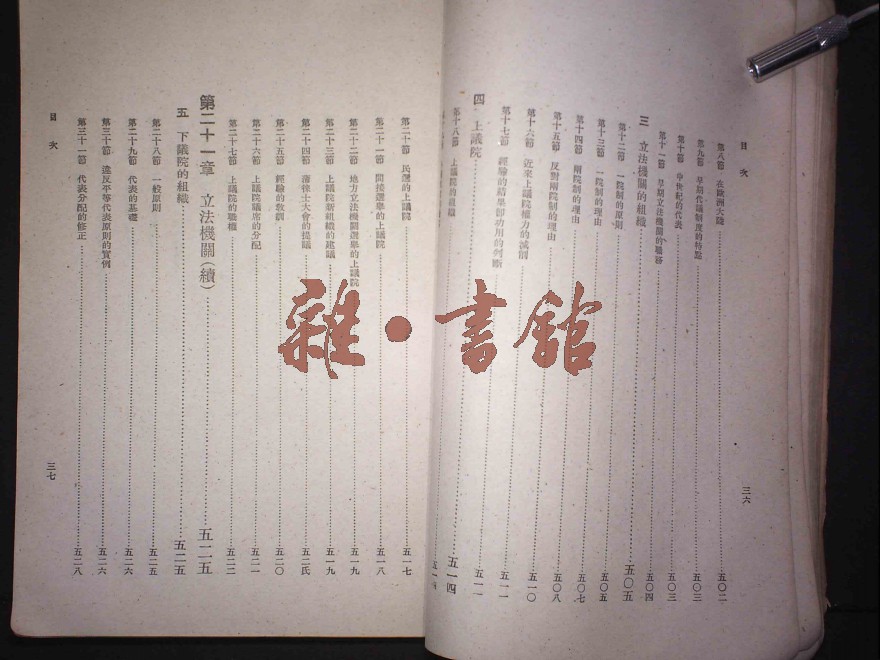 目次
第八節 在歐洲大陸 五〇二
第九節 早期代議制度的特點 五〇三
第十節 中世紀的代表 五〇三
第十一節 早期立法機關的職務 五〇四
三 立法機關的組織 五〇五
第十二節 一院制的原則 五〇五
第十三節 一院制的理由 五〇七
第十四節 兩院制的理由 五〇八
第十五節 反對兩院制的理由 五一〇
第十六節 近來上議院權力的減削 五一一
第十七節 經驗的結果卽功用的判斷 五一一
四 上議院 五一四
第十八節 上議院的組織
三六
目次
第二十節 民選的上議院 五一七
第二十一節 間接選舉的上議院 五一八
第二十二節 地方立法機關選舉的上議院 五一九
第二十三節 上議院新組織的建議 五一九
第二十四節 蒲徠士大會的提議 五二氏
第二十五節 經驗的敎訓 五二〇
第二十六節 上議院議席的分配 五二一
第二十七節 上議院的職權 五二二
第二十一章 立法機關(續) 五二五
五 下議院的組織 五二五
第二十八節 一般原則 五二五
第二十九節 代表的基礎 五二六
第三十節 違反平等代表原則的實例 五二六
第三十一節 代表分配的修正 五二八
三七
雜·書館